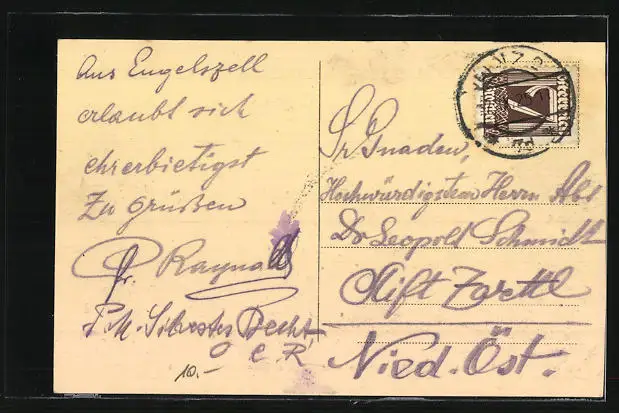 Aus Engelszell
erlaubt sich
ehrerbietigst
Zu grüßen
Fr. Raynald
P. M. Silvester Becht
O C R
10.-
Sr Gnaden,
Hochwürdigsten Herrn Abt
Dr Leopold Schmidt
Stift Zwettl
Nied. Öst.